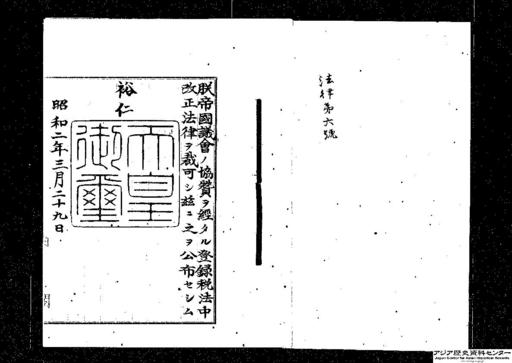 法律第六號
朕帝國議會ノ協贊ヲ經タル登録税法中
改正法律ヲ裁可シ茲ニ之ヲ公布セシム
裕仁
天皇
御璽
昭和二年三月二十九日
アジア歴史資料センター
Japan Center for Asian Historical Records